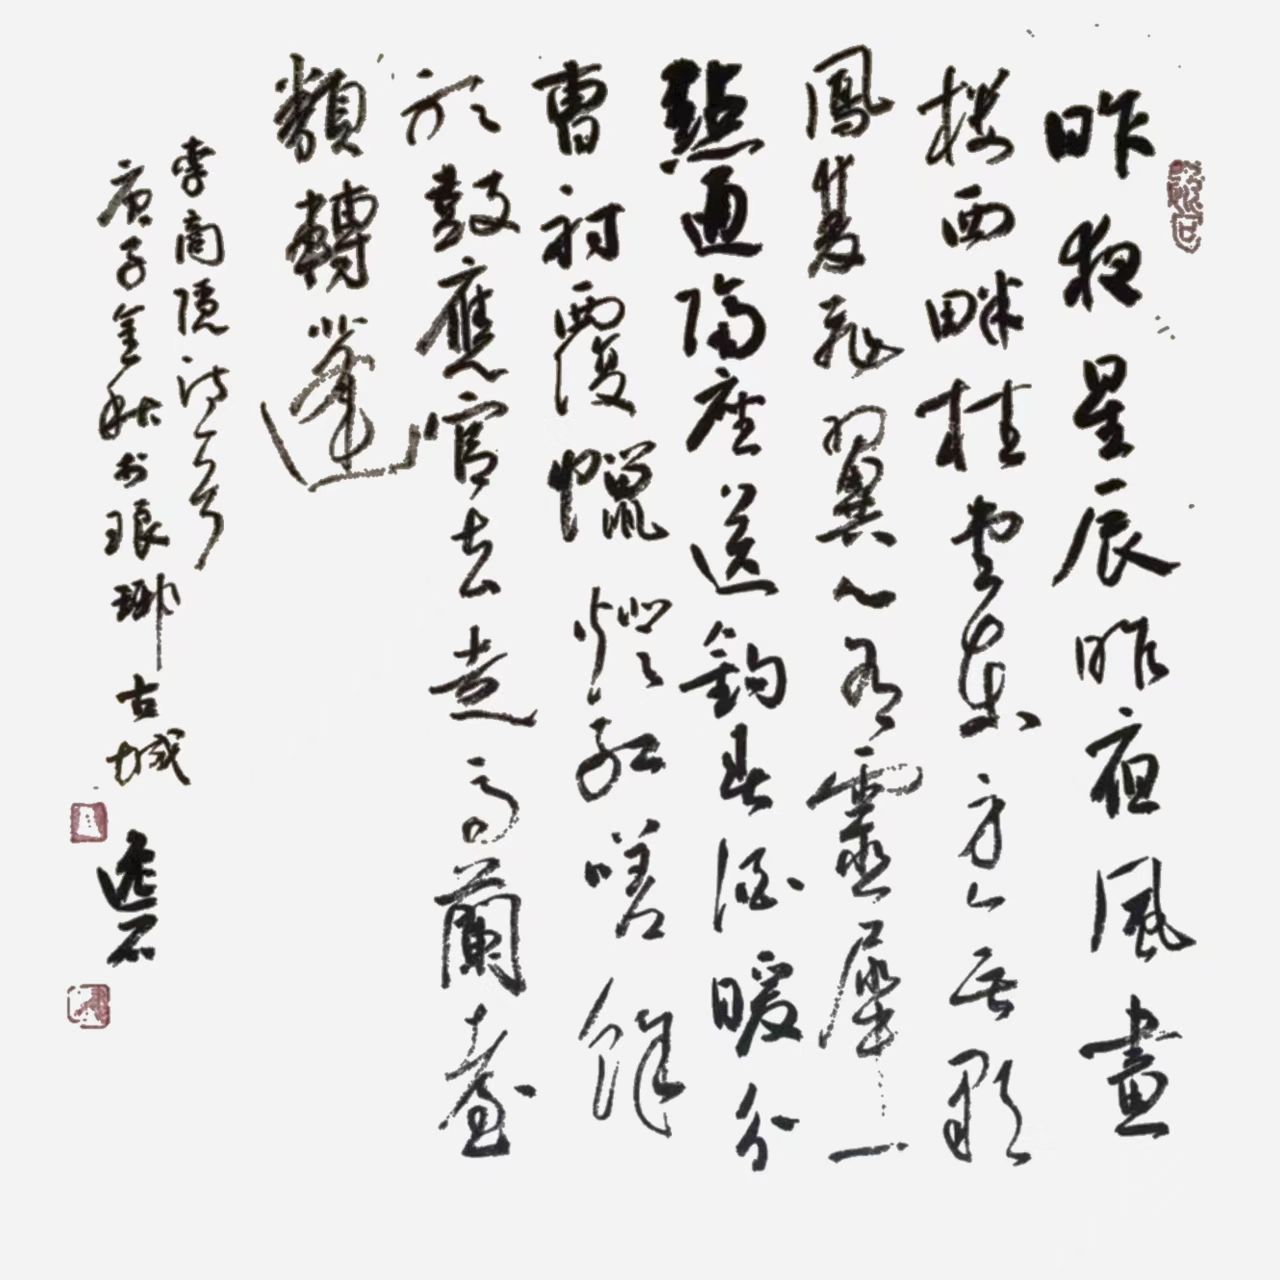 昨夜星辰昨夜風畫
楼西畔桂堂東身無彩
鳳雙飛翼心有靈犀一
點通隔座送鈎春酒暖分
曹射覆蠟燈紅嗟餘
於鼓應官去走馬蘭臺
類轉蓬
李商隱詩一首
庚子金秋书琅琊古城
逸石